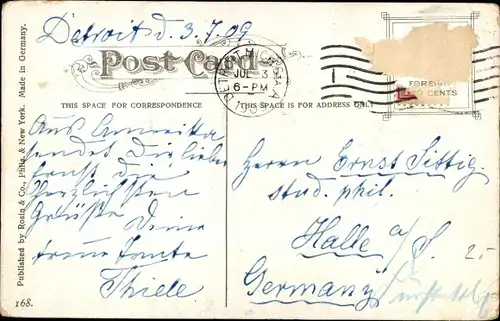 Detroit d. 3.7.09
Post Card
DETROIT, MICH.
JUL 3
6-PM
FOREIGN
TWO CENTS
THIS SPACE FOR CORRESPONDENCE
THIS SPACE IS FOR ADDRESS ONLY
Aus Amerika
sendet Dir liebe
Ernst die
herzlichsten
Grüße Deine
treue Tante
Thiele
Herrn Ernst Sittig
stud. phil.
Halle a/S.
Germany
2.-
Published by Rosin & Co., Phila. & New York. Made in Germany.
168.